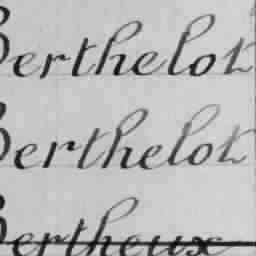 Berthelot
Berthelot
Bertheux